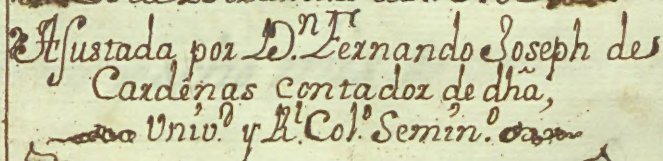 Ajustada por D.ⁿ Fernando Joseph de
Cardenas contador de dhã,
Univ.ᵈ y R.ˡ Col.º Semin.º